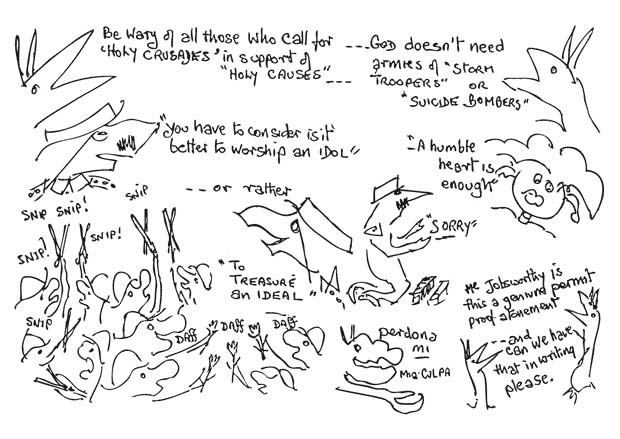 Be wary of all those who call for
'HOLY CRUSADES' in support of
"HOLY CAUSES"---
---GOD doesn't need
armies of "STORM
TROOPERS" OR
"SUICIDE BOMBERS"
"You have to consider is it
better to worship an IDOL"
"A humble
heart is
enough"
---or rather
SNIP SNIP!
SNIP
SNIP!
SNIP!
SNIP
"SORRY"
"TO
TREASURE
an IDEAL"
DAFF
DAFF
DAFF
perdona
mi
Mia CULPA
Mr Jobsworthy is
this a genuine permit
proof atonement
---and
can we have
that in writing
please.